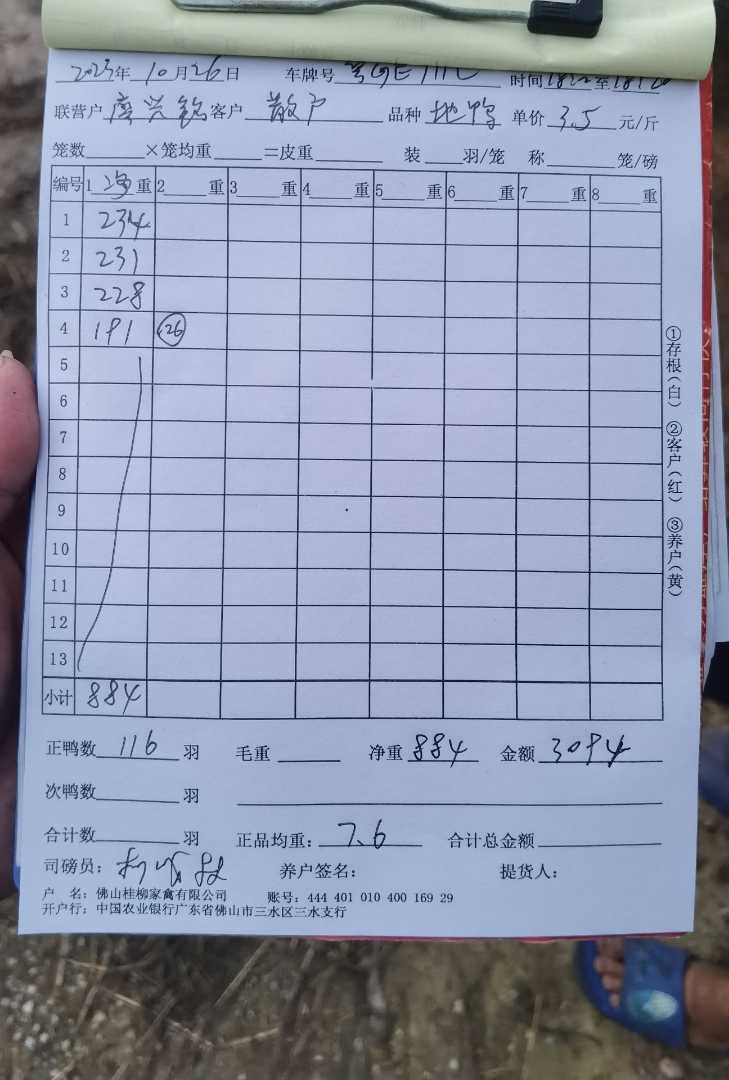 2023年 10月26日 车牌号 时间 至
联营户 客户 散户 品种 地鸭 单价 3.5 元/斤
笼数 ×笼均重 =皮重 装 羽/笼 称 笼/磅
编号 1 净 重 2 重 3 重 4 重 5 重 6 重 7 重 8 重
1 234
2 231
3 228
4 191 26
5
6
7
8
9
10
11
12
13
小计 884
正鸭数 116 羽 毛重 净重 884 金额 3094
次鸭数 羽
合计数 羽 正品均重: 7.6 合计总金额
司磅员: 养户签名: 提货人:
户 名: 佛山桂柳家禽有限公司 账号: 444 401 010 400 169 29
开户行: 中国农业银行广东省佛山市三水区三水支行
①存根(白) ②客户(红) ③养户(黄)